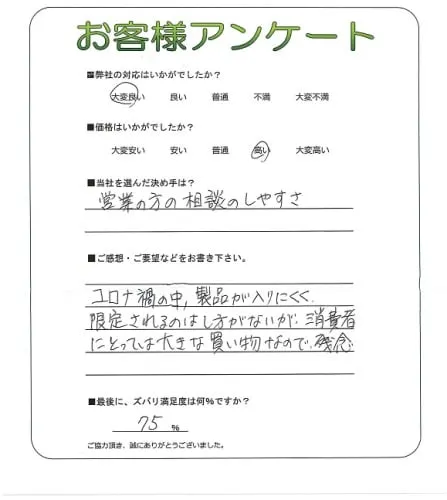 お客様アンケート
■弊社の対応はいかがでしたか？
大変良い 良い 普通 不満 大変不満
■価格はいかがでしたか？
大変安い 安い 普通 高い 大変高い
■当社を選んだ決め手は？
営業の方の相談のしやすさ
■ご感想・ご要望などをお書き下さい。
コロナ禍の中、製品が入りにくく、
限定されるのはし方がないが、消費者
にとっては大きな買い物なので、残念
■最後に、ズバリ満足度は何%ですか？
75 %
ご協力頂き、誠にありがとうございました。